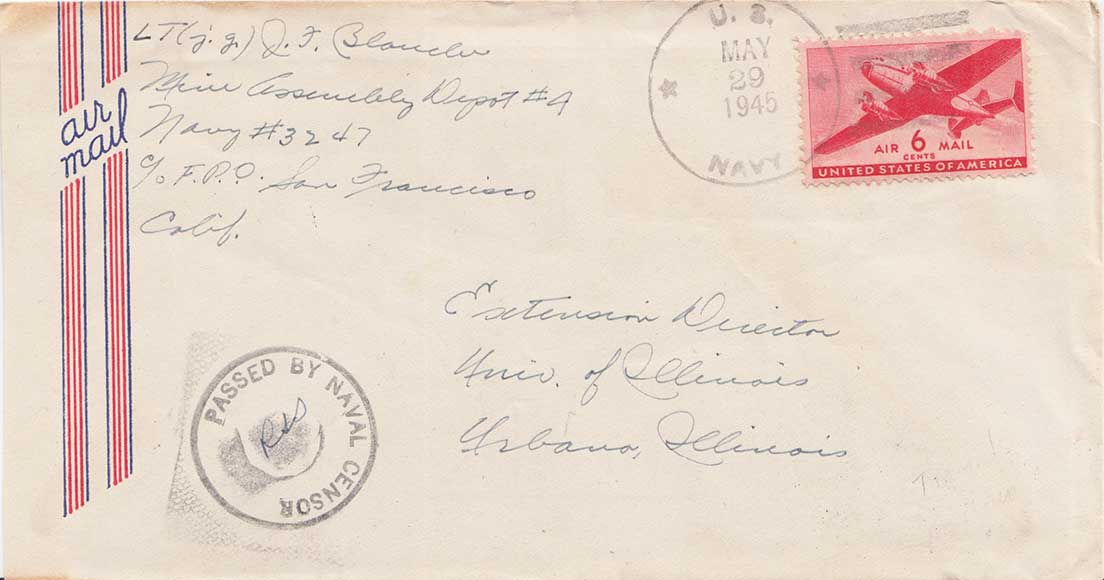 LT(j.g.) J. F. Blancher
Mine Assembly Depot #4
Navy #3247
c/o F.P.O. San Francisco
Calif.
air
mail
U. S.
MAY
29
1945
NAVY
AIR 6 MAIL
CENTS
UNITED STATES OF AMERICA
Extension Director
Univ. of Illinois
Urbana, Illinois
PASSED BY NAVAL CENSOR